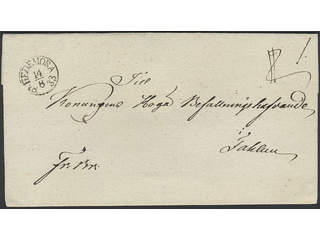 HEDEMORA
14
8
1833
Till
Konungens Höga Befallningshafvande
i
Fahlun
Fr. Br.